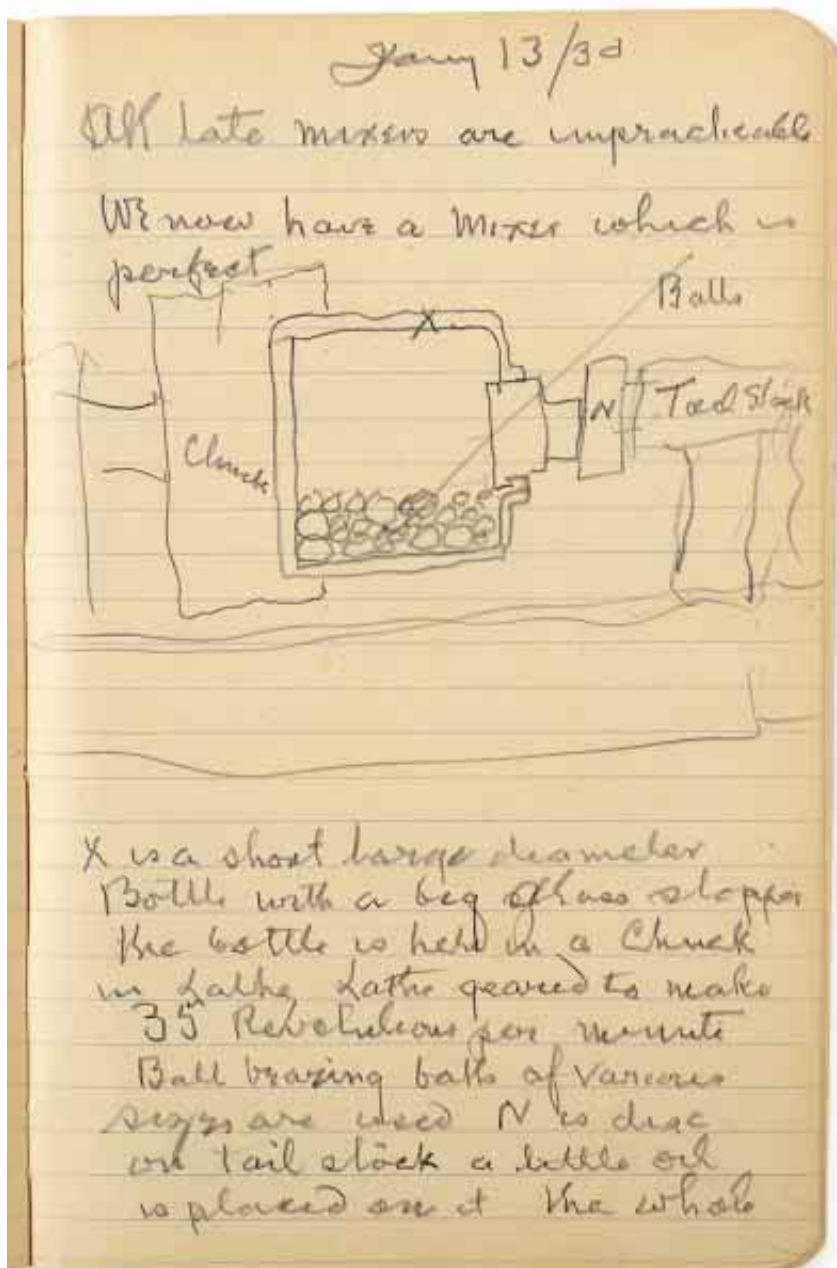 Jany 13/30
All late mixers are impracticable
We now have a Mixer which is
perfect
Balls
X
Chuck
N
Tail Stock
X is a short large diameter
Bottle with a big glass stopper
the bottle is held in a Chuck
in Lathe Lathe geared to make
35 Revolutions per minute
Ball bearing balls of various
sizes are used N is disc
on tail stock a little oil
is placed on it the whole